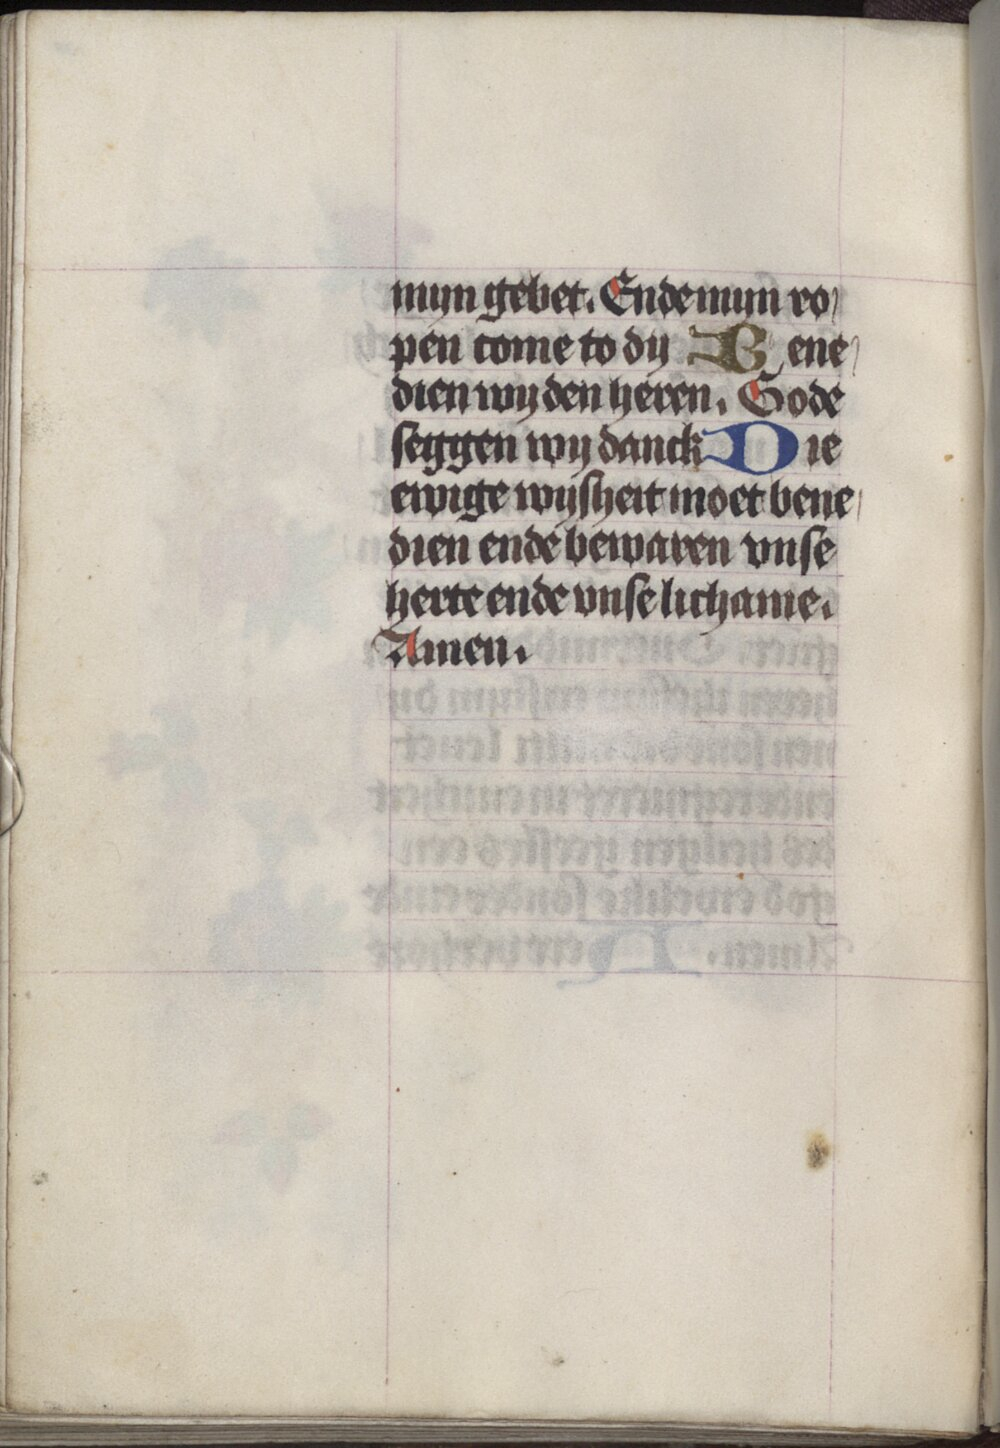 mijn gebet. Ende mijn ro
pen come to dij Bene
dien wij den heren. Gode
seggen wij danck Die
ewige wijsheit moet bene
dien ende bewaren vnse
herte ende vnse lichame.
Amen.